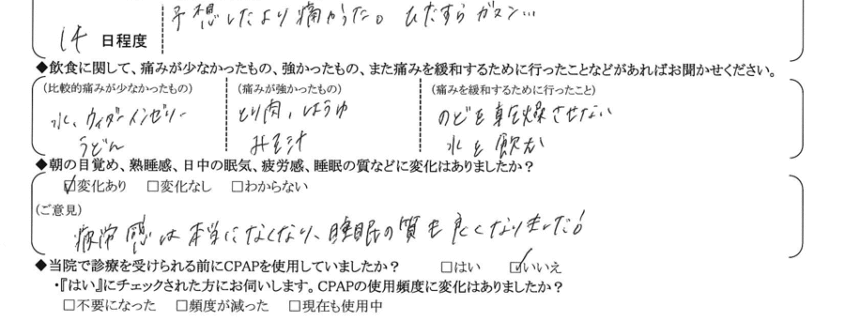 予想したより痛かった。ひたすらガマン…
14 日程度
◆飲食に関して、痛みが少なかったもの、強かったもの、また痛みを緩和するために行ったことなどがあればお聞かせください。
(比較的痛みが少なかったもの) (痛みが強かったもの) (痛みを緩和するために行ったこと)
水、ウィダーインゼリー とり肉、しょうゆ のどを乾燥させない
うどん みそ汁 水を飲む
◆朝の目覚め、熟睡感、日中の眠気、疲労感、睡眠の質などに変化はありましたか？
☑変化あり □変化なし □わからない
(ご意見)
疲労感は本当になくなり、睡眠の質も良くなりました！
◆当院で診療を受けられる前にCPAPを使用していましたか？ □はい ☑いいえ
・『はい』にチェックされた方にお伺いします。CPAPの使用頻度に変化はありましたか？
□不要になった □頻度が減った □現在も使用中